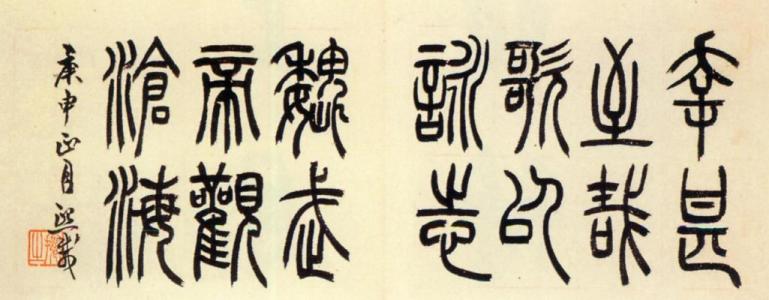 幸甚
至哉
歌以
詠志
魏武
帝觀
滄海
庚申正月熙載